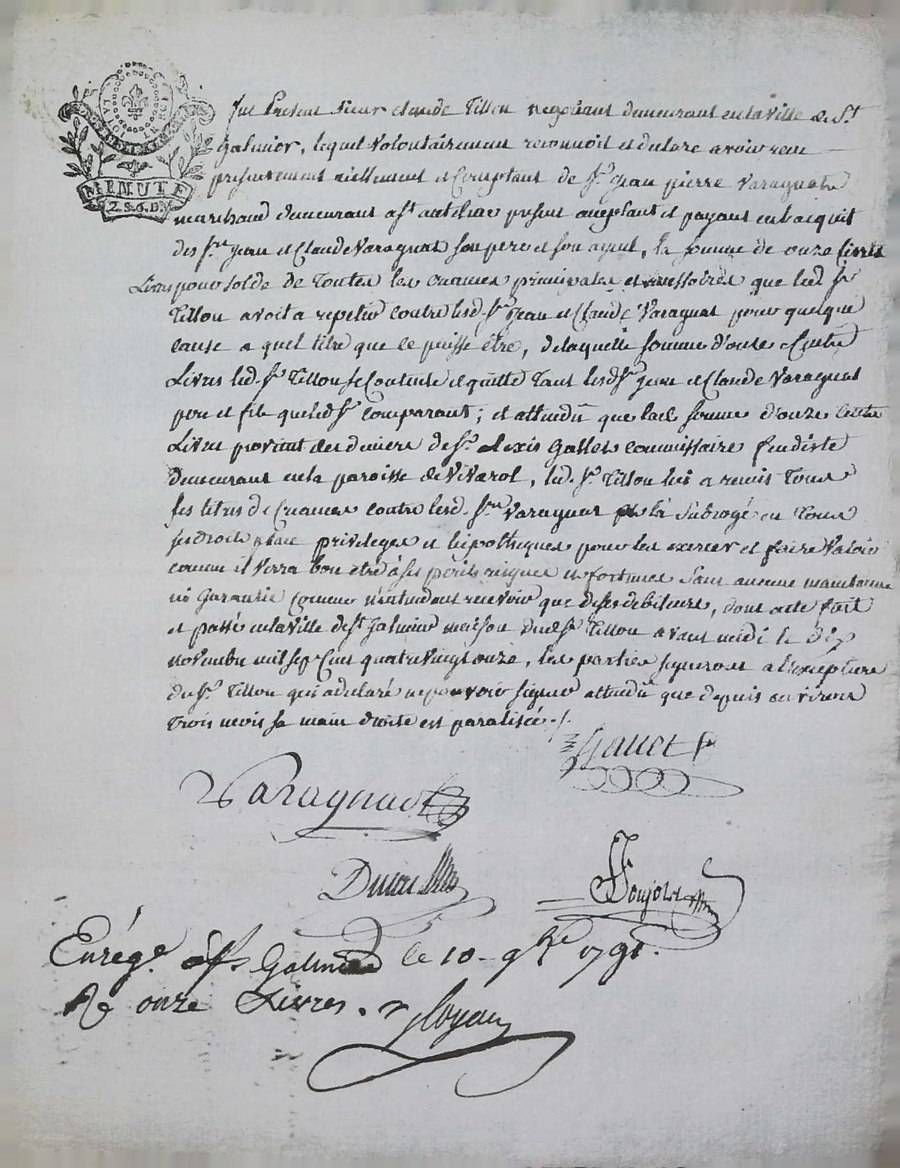 LA LOI
LE ROI
MINUTE
2.S.6.D.
fut Present sieur Claude Tillon negotiant demeurant en la ville de St
Galmier, lequel volontairement reconnoit et declare avoir recu
presentement réellement et Comptant de Sr. Jean pierre Varagnat
marchand demeurant a St present aceptant et payant en lacquit
des Srs Jean et Claude Varagnat son pere et son ayeul, la somme de onze Cents
Livres pour solde de Toutes les creances principales et accessoires que led Sr
Tillon avoit a repeter contre lesd. Srs Jean et Claude Varagnat pour quelque
cause a quel titre que ce puisse être, de laquelle somme d'onze Cents
Livres led. Sr Tillon se Contente et quitte Tant lesd Srs Jean et Claude Varagnat
pere et fils que led Sr comparant; et attendû que lad somme d'onze Cents
Livres provient des deniers de Sr. alexis Gallet commissaire feudiste
demeurant en la paroisse de Viverol, led. Sr. Tillon lui a remis Tous
ses titres de Creances contre lesd. Srs Varagnat la Subrogé en Tous
ses droits place privileges et hipotheques pour les exercer et faire Valoir
comme il verra bon etre à ses perils risques et fortunes Sans aucune maintenue
ni Garantie comme n'entendant recevoir que de ses debiteurs, dont acte fait
et passé en la ville de St Galmier maison dud Sr. Tillon avant midi le Dix
novembre mil sept Cent quatrevingt onze, les parties signeront a l'exception
du Sr. Tillon qui a declaré ne pouvoir signer attendû que depuis environ
Trois mois sa main droite est paralisée ./.
Gallet
Varagnat
Enrégé. à St Galmier le 10 9bre 1791.
Rç onze Livres.